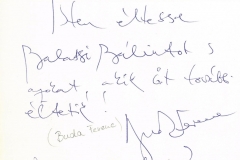 Isten éltesse
Balassi Bálintot s
azokat, akik őt tovább
éltetik!
(Buda Ferenc)
Buda Ferenc